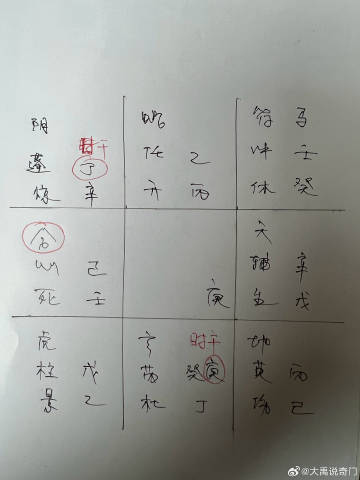 阴
时干
蓬 丁
惊 辛
蛇
任 乙
开 丙
符 马
冲 壬
休 癸
合
心 己
死 壬
庚
天
辅 辛
生 戊
虎
柱 戊
景 乙
时干
芮 癸
杜 丁
地
英 丙
伤 己
@大禹说奇门